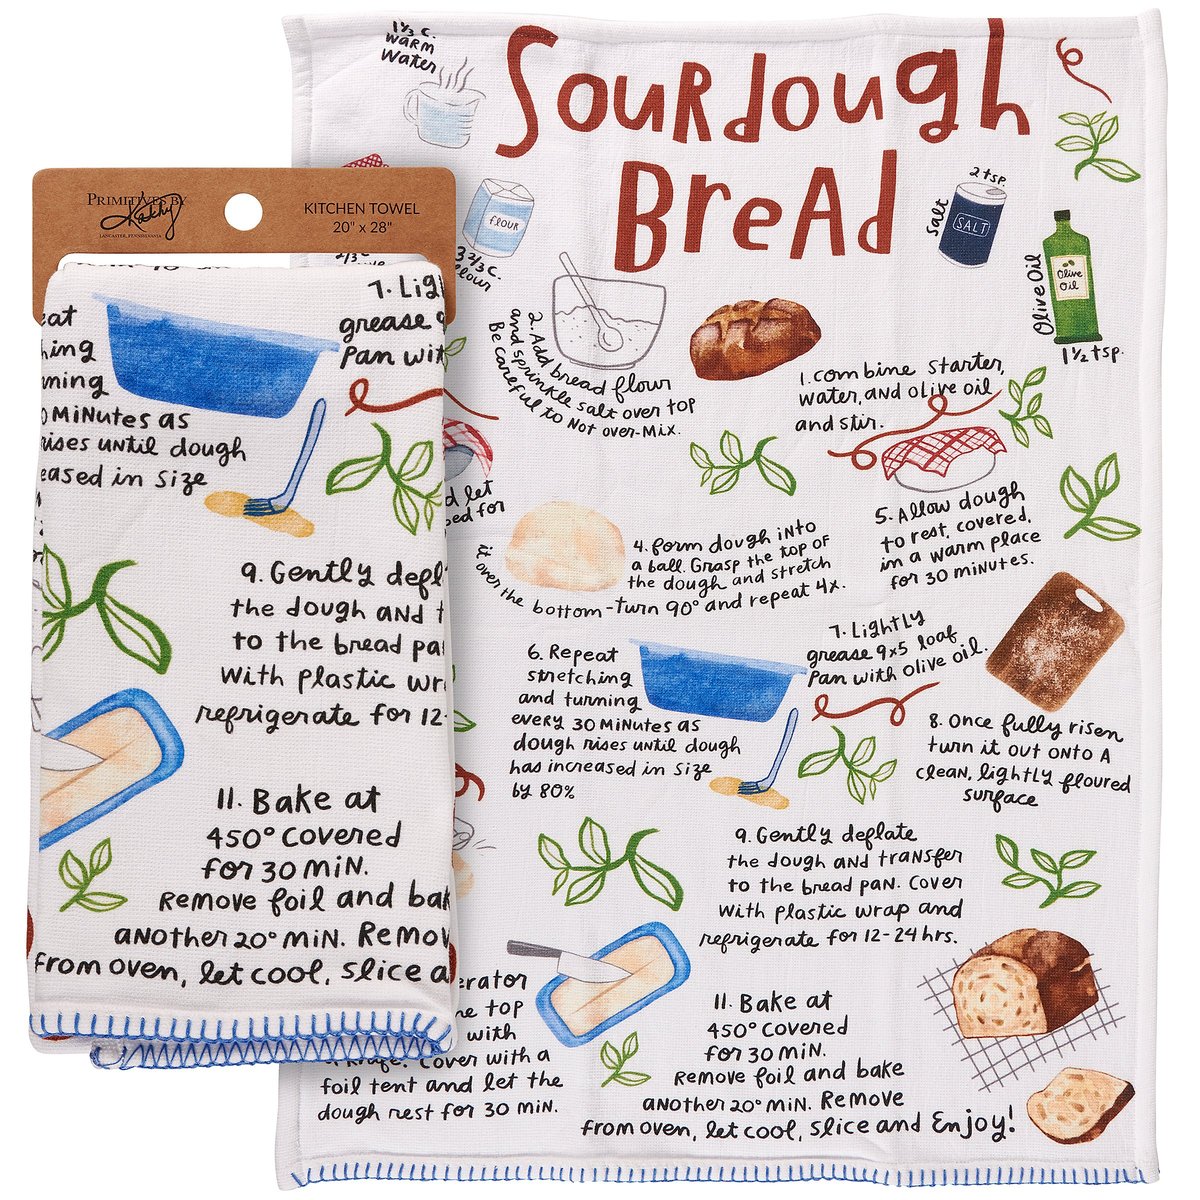 1⅓ C.
WARM
Water
Sourdough
Bread
PRIMITIVES BY
Kathy
LANCASTER, PENNSYLVANIA
KITCHEN TOWEL
20" x 28"
flour
3 ⅔ C.
flour
2 tsp.
Salt
SALT
Olive Oil
Olive
Oil
1½ tsp.
1. Combine starter,
water, and olive oil
and stir.
2. Add bread flour
and sprinkle salt over top
Be careful to Not over-Mix.
d let
ed for
4. form dough into
a ball. Grasp the top of
the dough and stretch
it over the bottom-turn 90° and repeat 4x.
5. Allow dough
to rest, covered,
in a warm place
for 30 minutes.
6. Repeat
stretching
and turning
every 30 minutes as
dough rises until dough
has increased in size
by 80%
7. Lightly
grease 9x5 loaf
pan with olive oil.
8. Once fully risen
turn it out onto a
clean, lightly floured
surface
9. Gently deflate
the dough and transfer
to the bread pan. Cover
with plastic wrap and
refrigerate for 12-24 hrs.
erator
e top
with
Cover with a
foil tent and let the
dough rest for 30 min.
11. Bake at
450° Covered
for 30 min.
Remove foil and bake
another 20° min. Remove
from oven, let cool, slice and Enjoy!
7. Lig
grease 9
pan wit
eat
hing
rning
0 minutes as
rises until dough
eased in size
9. Gently defl
the dough and t
to the bread pa
with plastic wr
refrigerate for 12-
11. Bake at
450° Covered
for 30 min.
Remove foil and bak
another 20° min. Remov
from oven, let cool, slice a